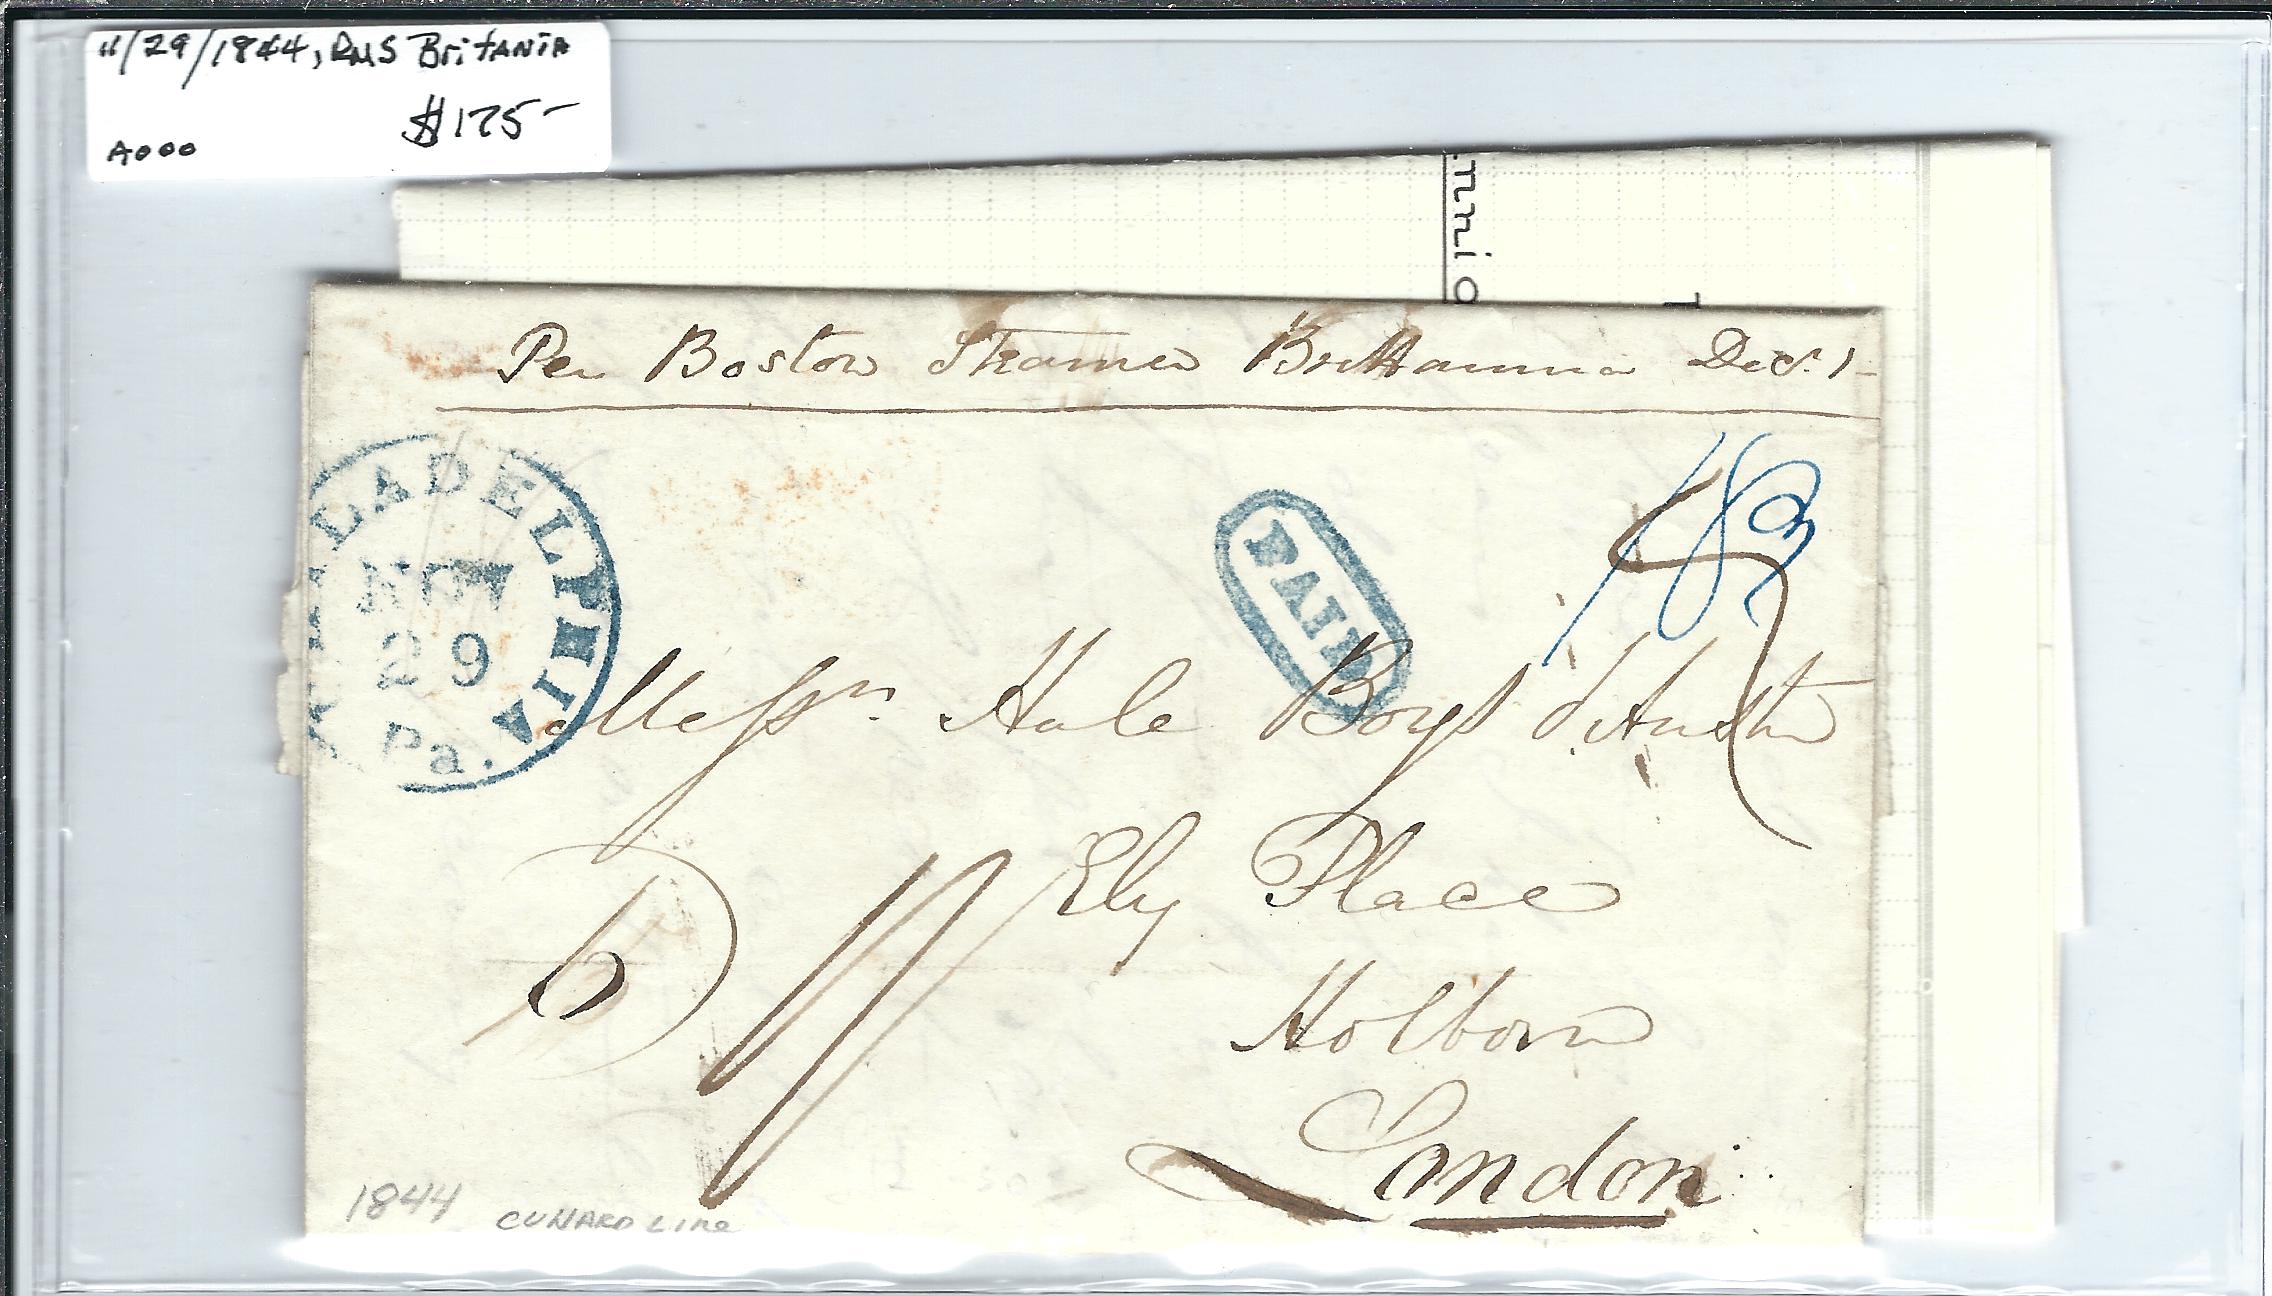 11/29/1844, RMS Britania
$175-
A000
nnio
Per Boston Steamer Brittannia Dec. 1-
PHILADELPHIA Pa.
NOV
29
PAID
18¾
Messrs. Hale Boys & Austen
Ely Place
Holborn
London
1844 CUNARD Line